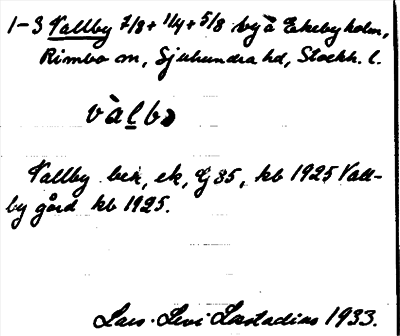 1-3 Vallby 7/8 + 1/4 + 5/8 by å Ekebyholm,
Rimbo sn, Sjuhundra hd, Stockh. l.
vàlbɔ
Vallby bek, ek, G 35, kb 1925 Vall-
by gård kb 1925.
Lars-Levi Læstadius 1933.